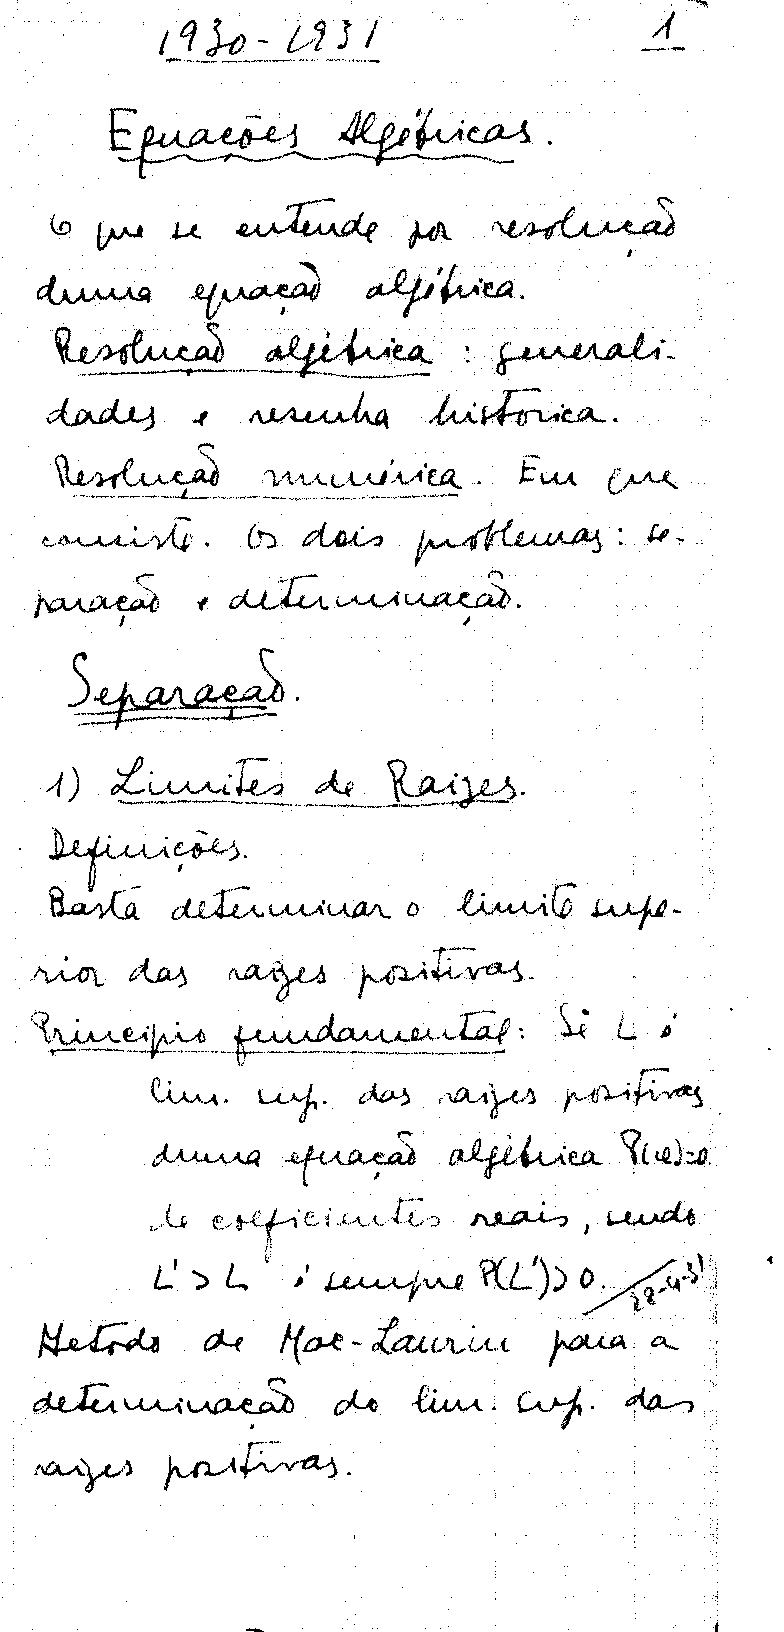 1930-1931 1
Equações Algébricas.
O que se entende por resolução
duma equação algébrica.
Resolução algébrica: generali-
dades e resenha histórica.
Resolução numérica. Em que
consiste. Os dois problemas: se-
paração e determinação.
Separação.
1) Limites de Raizes.
Definições.
Basta determinar o limite supe-
rior das raizes positivas.
Principio fundamental: Se L é
lim. sup. das raizes positivas
duma equação algébrica P(x)=0
de coeficientes reais, sendo
L'>L é sempre P(L')>0. 22-4-31
Metodo de Mac-Laurin para a
determinação do lim. sup. das
raizes positivas.